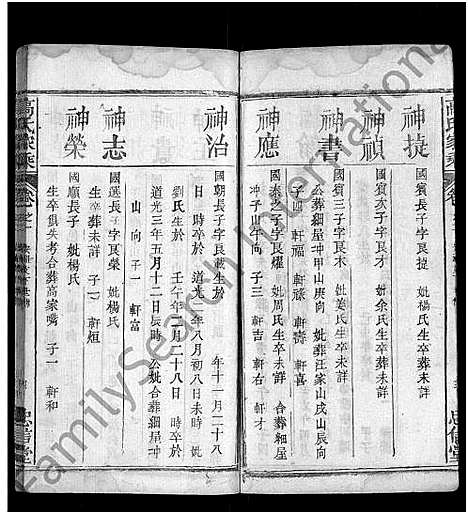 神提
國賓長子字艮提 妣楊氏生卒葬未詳
神禎
國賓次子字艮才 妣余氏生卒葬未詳
神書
國賓三子字艮木 妣姜氏生卒未詳
公葬細屋冲甲山庚向 妣葬汪家山戌山辰向
子四 軒福 軒祿 軒壽 軒喜
神應
國泰之子字艮燿 妣周氏生卒未詳 合葬細屋
冲子山午向 子三 軒吉 軒右 軒才
神治
國朝長子字艮載生於 年十一月二十八
日 時卒於道光 年八月初八日未時 妣
劉氏生於 壬午年二月二十八日 時卒於
道光三年五月十二日辰時 公妣合葬細屋冲
山向 子一 軒富
神志
國選長子字艮榮 妣楊氏
生卒葬未詳 子一 軒烜
神榮
國順長子 妣楊氏
生卒俱失考合葬高家嘴 子一 軒和
高氏家乘
忠信堂
FamilySearch International